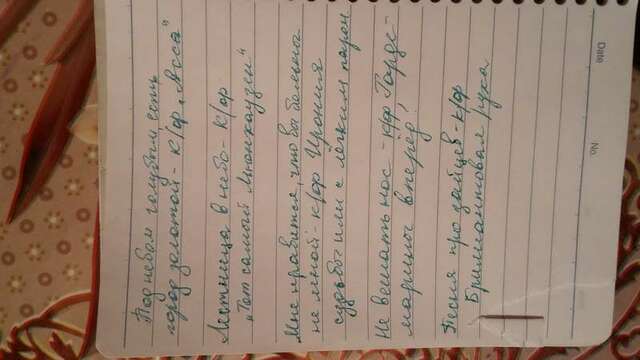 Под небом голубым есть
город золотой - к/ф „Асса"
Лестница в небо - к/ф
„Тот самый Мюнхаузен"
Мне нравится, что вы больны
не мной - к/ф Ирония
судьбы или с лёгким паром
Не вешать нос - к/ф Гарде-
марины вперёд!
Песня про зайцев - к/ф
Бриллиантовая рука
Date
No